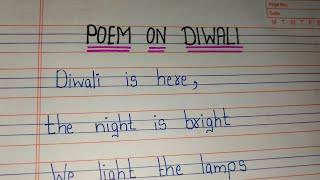 POEM ON DIWALI
Diwali is here,
the night is bright
We light the lamps